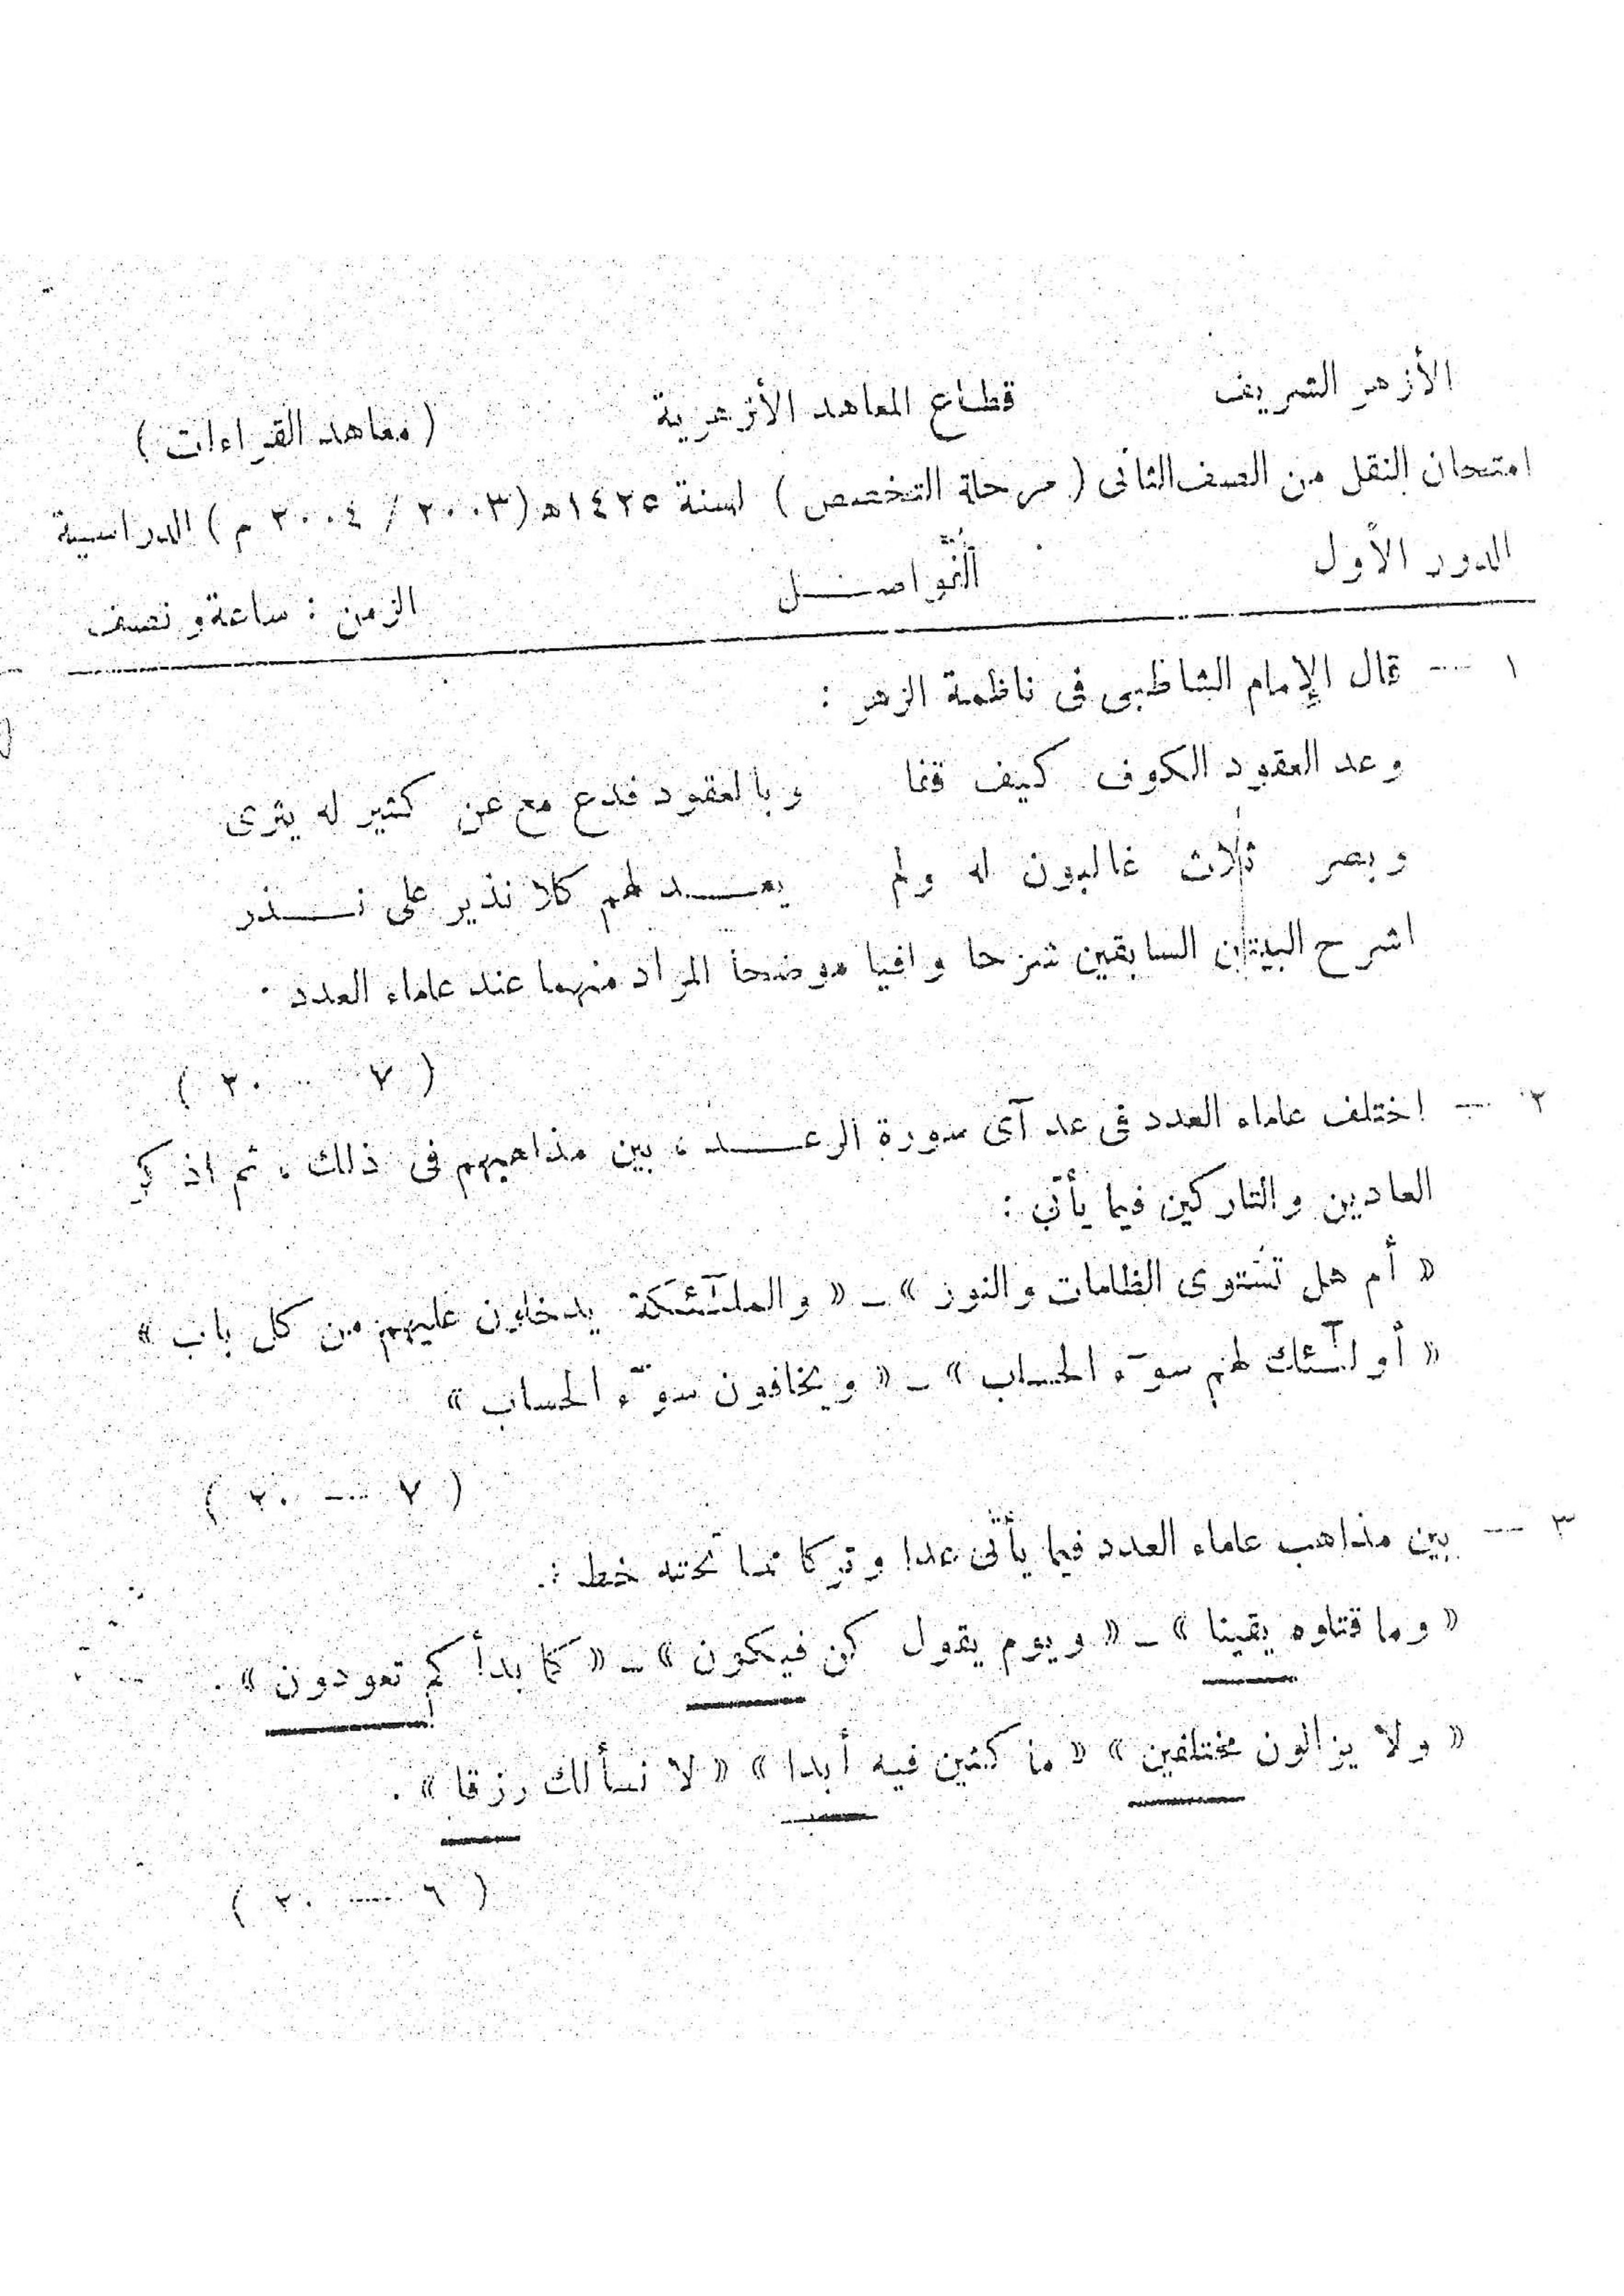 الأزهر الشريف قطاع المعاهد الأزهرية ( معاهد القراءات )
امتحان النقل من الصف الثانى ( مرحلة التخصص ) لسنة ١٤٢٥هـ (٢٠٠٣ / ٢٠٠٤ م ) الدراسية
الدور الأول الفواصل الزمن : ساعة ونصف
١ — قال الإمام الشاطبى فى ناظمة الزهر :
وعد العقود الكوف كيف قفا وبالعقود فدع مع عن كثير له يثرى
وبصر ثلاث غالبون له ولم يعد لهم كلا نذير على نذر
اشرح البيتين السابقين شرحا وافيا موضحا المراد منهما عند علماء العدد .
( ٧ — ٢٠ )
٢ — اختلف علماء العدد فى عد آى سورة الرعد ، بين مذاهبهم فى ذلك ، ثم اذكر
العادين والتاركين فيما يأتى :
« أم هل تستوى الظلمات والنور » – « والملٰٓئكة يدخلون عليهم من كل باب »
« أولٰٓئك لهم سوٓء الحساب » – « ويخافون سوٓء الحساب »
( ٧ — ٢٠ )
٣ — بين مذاهب علماء العدد فيما يأتى عدا وتركا مما تحته خط :
« وما قتلوه يقينا » – « ويوم يقول كن فيكون » – « كما بدأكم تعودون » .
« ولا يزالون مختلفين » « ماكثين فيه أبدا » « لا نسألك رزقا » .
( ٦ — ٢٠ )